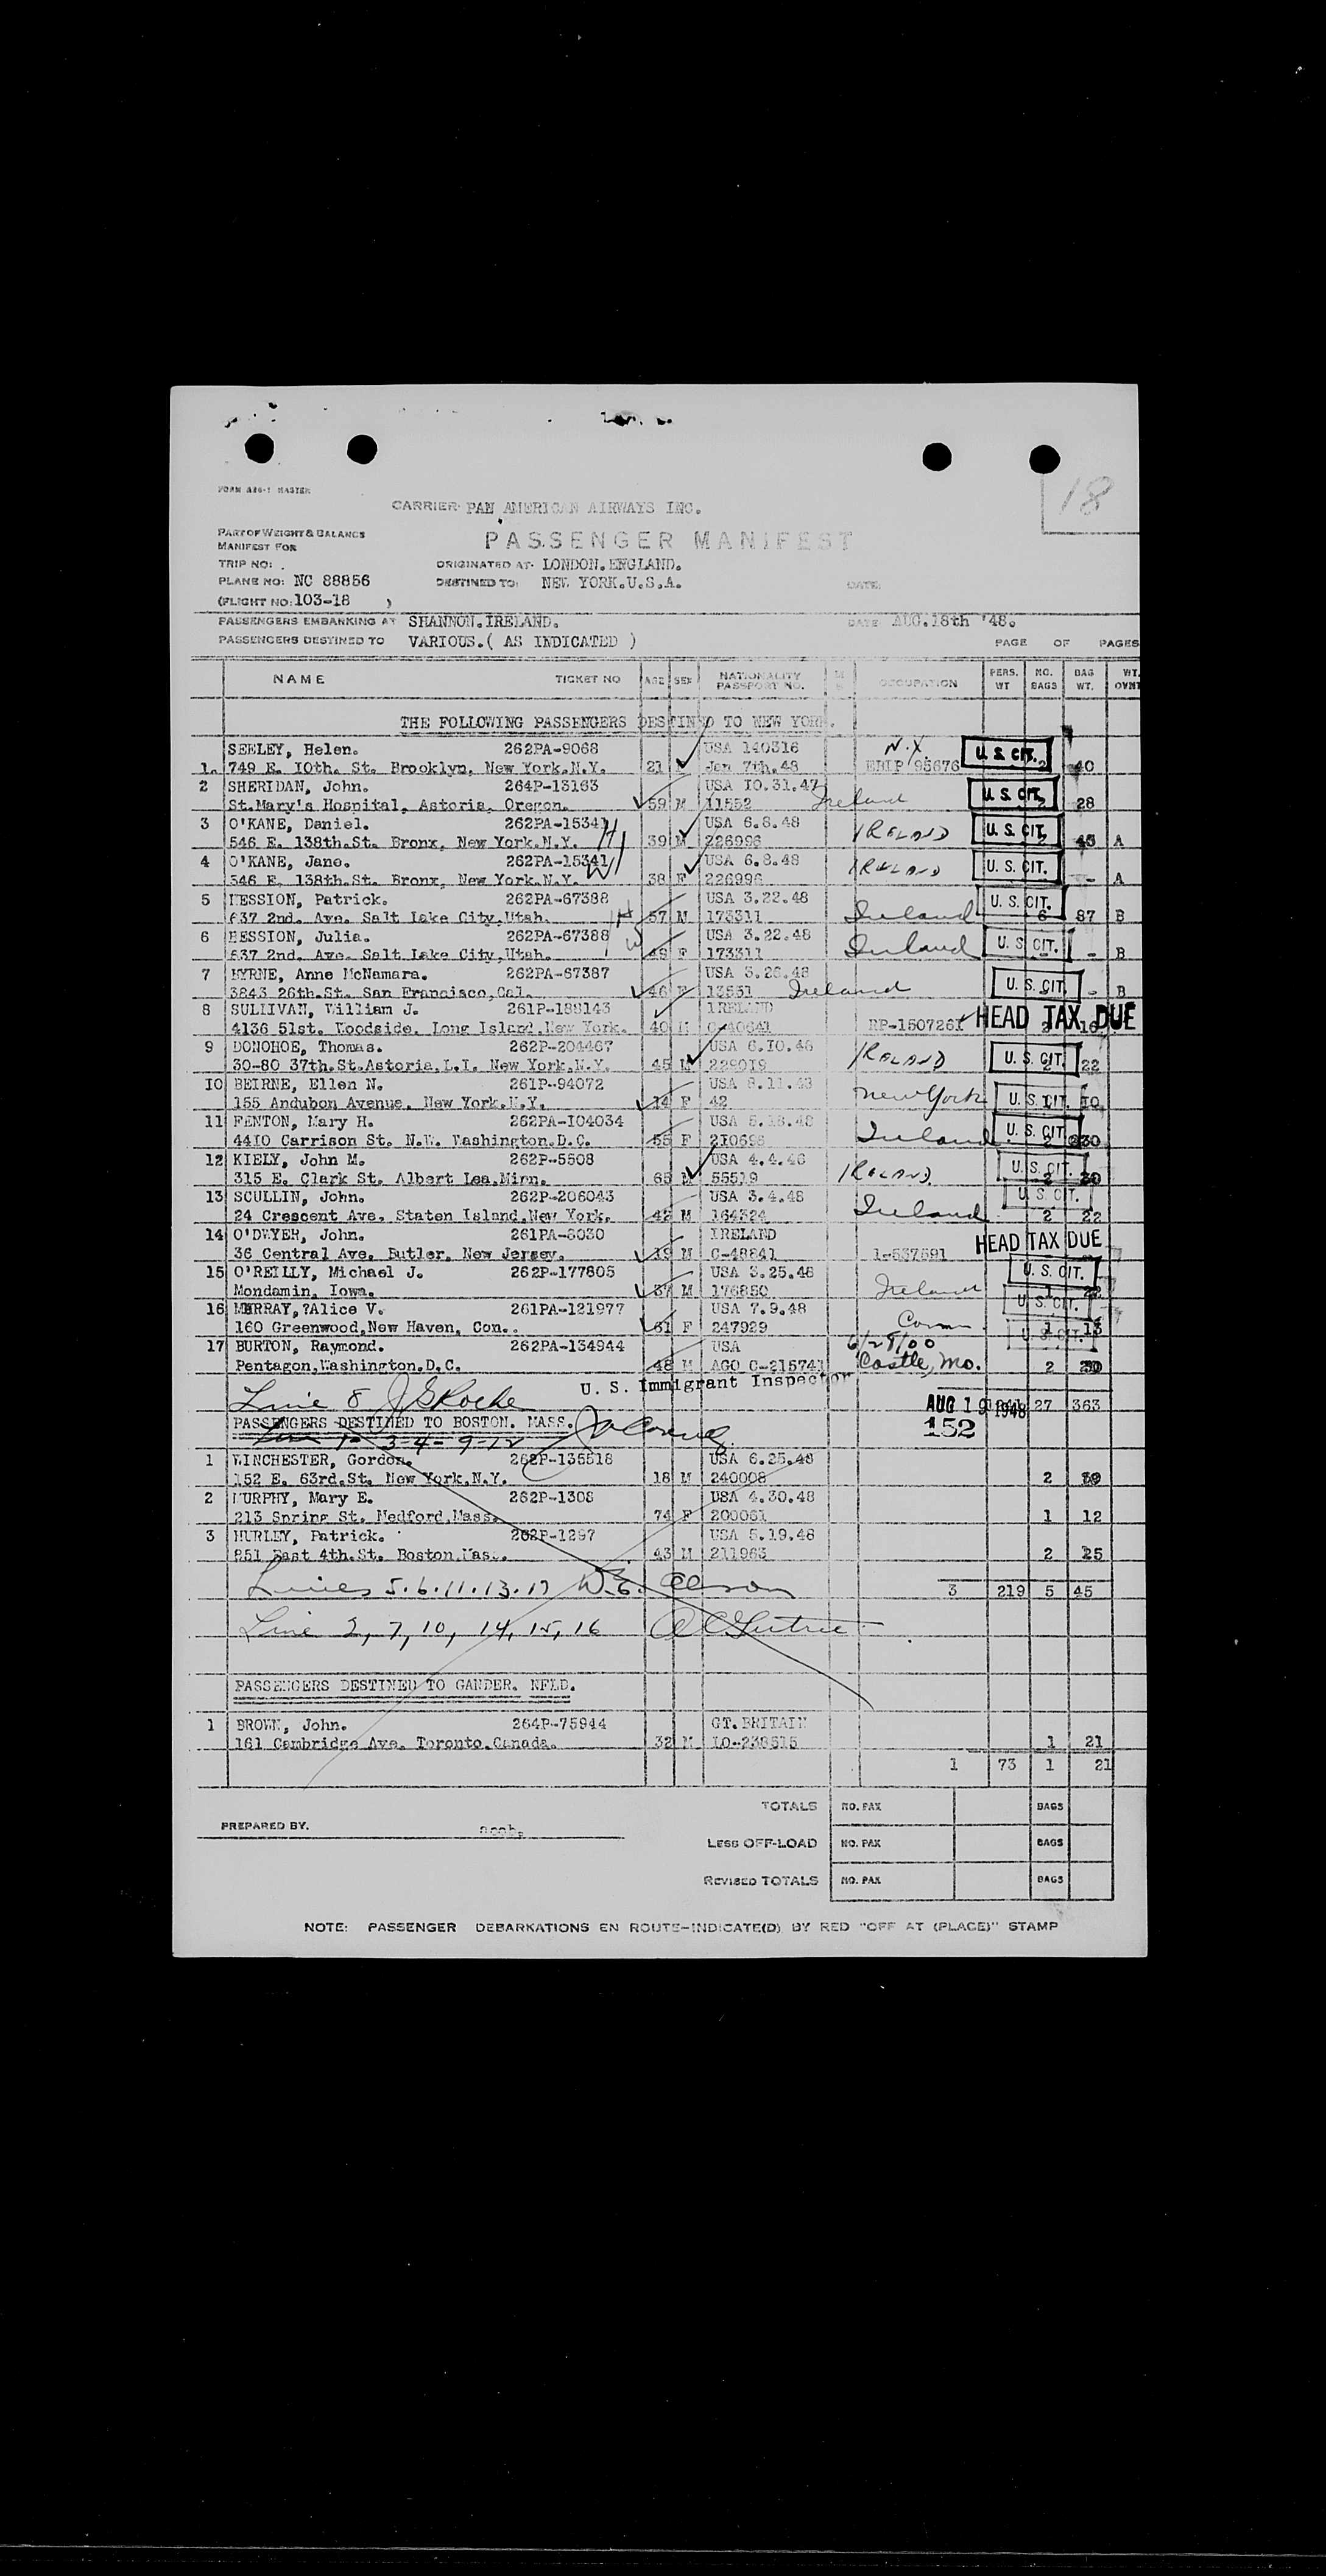 18
FORM A26-1 MASTER
CARRIER PAN AMERICAN AIRWAYS INC.
PART OF WEIGHT & BALANCE
MANIFEST FOR
PASSENGER MANIFEST
TRIP NO:
ORIGINATED AT- LONDON.ENGLAND.
PLANE NO: NC 88856
DESTINED TO: NEW YORK.U.S.A.
DATE:
(FLIGHT NO:103-18 )
PASSENGERS EMBANKING AT SHANNON.IRELAND.
DATE AUG.18th '48.
PASSENGERS DESTINED TO VARIOUS.( AS INDICATED )
PAGE OF PAGES
NAME TICKET NO AGE SEX NATIONALITY PASSPORT NO. OCCUPATION PERS. WT NO. BAGS BAG WT. WT. OVNT
THE FOLLOWING PASSENGERS DESTINED TO NEW YORK.
SEELEY, Helen. 262PA-9068 USA 140316 N.Y. U.S. CIT.
1. 749 E. 10th. St. Brooklyn, New York.N.Y. 21 Jan 7th.48 95676 2 40
2 SHERIDAN, John. 264P-13163 USA 10.31.47 Ireland U.S. CIT.
St.Mary's Hospital, Astoria, Oregon. 59 M 11552 28
3 O'KANE, Daniel. 262PA-15341 H USA 6.8.48 IRELAND U.S. CIT.
546 E. 138th.St. Bronx, New York.N.Y. 39 M 226996 2 A
4 O'KANE, Jane. 262PA-15341 W USA 6.8.48 IRELAND U.S. CIT.
546 E. 138th.St. Bronx, New York.N.Y. 38 F 226996 - A
5 Patrick. 262PA-67388 H USA 3.22.48 Ireland U.S. CIT.
637 2nd. Ave. Salt Lake City,Utah. 57 M 173311 6 87 B
6 Julia. 262PA-67388 W USA 3.22.48 Ireland U.S. CIT.
637 2nd. Ave. Salt Lake City,Utah. F 173311 - - B
7 BYRNE, Anne McNamara. 262PA-67387 USA Ireland U.S. CIT.
3843 26th.St. San Francisco,Cal. 46 F 13551 - - B
8 SULLIVAN, William J. 261P-188143 IRELAND HEAD TAX DUE
4136 51st. Woodside. Long Island.New York. 40 M C-40641 RP-1507261 2 16
9 DONOHOE, Thomas. 262P-204467 USA IRELAND U.S. CIT.
30-80 37th.St.Astoria.L.I. New York.N.Y. 45 M 229019 2 22
10 BEIRNE, Ellen N. 261P-94072 USA New York U.S. CIT.
155 Andubon Avenue. New York.N.Y. 14 F 42 1 10
11 FENTON, Mary H. 262PA-I04034 USA Ireland U.S. CIT.
4410 Carrison St. N.W. Washington.D.C. 55 F 210698 2 30
12 KIELY, John M. 262P-5508 USA 4.4.46 IRELAND U.S. CIT.
315 E. Clark St. Albert Lea.Minn. 65 M 55519
13 SCULLIN, John. 262P-206043 USA 3.4.48 Ireland U.S. CIT.
24 Crescent Ave. Staten Island,New York. 42 M 164324 2 22
14 O'DWYER, John. 261PA-8030 IRELAND HEAD TAX DUE
36 Central Ave. Butler. New Jersey. 19 M C-48841 1-537591
15 O'REILLY, Michael J. 262P-177805 USA 3.25.48 Ireland U.S. CIT.
Mondamin, Iowa. 37 M 176850 1
16 MURRAY,?Alice V. 261PA-121977 USA 7.9.48 Conn. U.S. CIT.
160 Greenwood,New Haven, Con.. 61 F 247929 1 13
17 BURTON, Raymond. 262PA-134944 USA 6/29/00 U.S. CIT.
Pentagon,Washington.D.C. 48 M AGO C-215741 Castle, Mo. 2
U. S. Immigrant Inspector
Line 8 J G Roche AUG 19 1948 27 363
PASSENGERS DESTINED TO BOSTON. MASS. 152
Line 1- 3-4-9-12
1 WINCHESTER, Gordon. 262P-135518 USA 6.25.48
152 E. 63rd.St. New York.N.Y. 18 M 240008 2
2 MURPHY, Mary E. 262P-1308 USA 4.30.48
213 Spring St. Medford.Mass. 74 F 200061 1 12
3 HURLEY, Patrick. 262P-1297 USA 5.19.48
851 East 4th.St. Boston.Mass. 43 M 211963 2 25
Lines 5.6.11.13.17 W.E. Olson 3 219 5 45
Line 2, 7, 10, 14, 15, 16
PASSENGERS DESTINED TO GANDER. NFLD.
1 BROWN, John. 264P-75944 GT.BRITAIN
161 Cambridge Ave. Toronto.Canada. 32 M LO-238515 1 21
1 73 1 21
TOTALS NO. PAX BAGS
PREPARED BY.
LESS OFF-LOAD NO. PAX BAGS
REVISED TOTALS NO. PAX BAGS
NOTE: PASSENGER DEBARKATIONS EN ROUTE-INDICATE(D) BY RED "OFF AT (PLACE)" STAMP